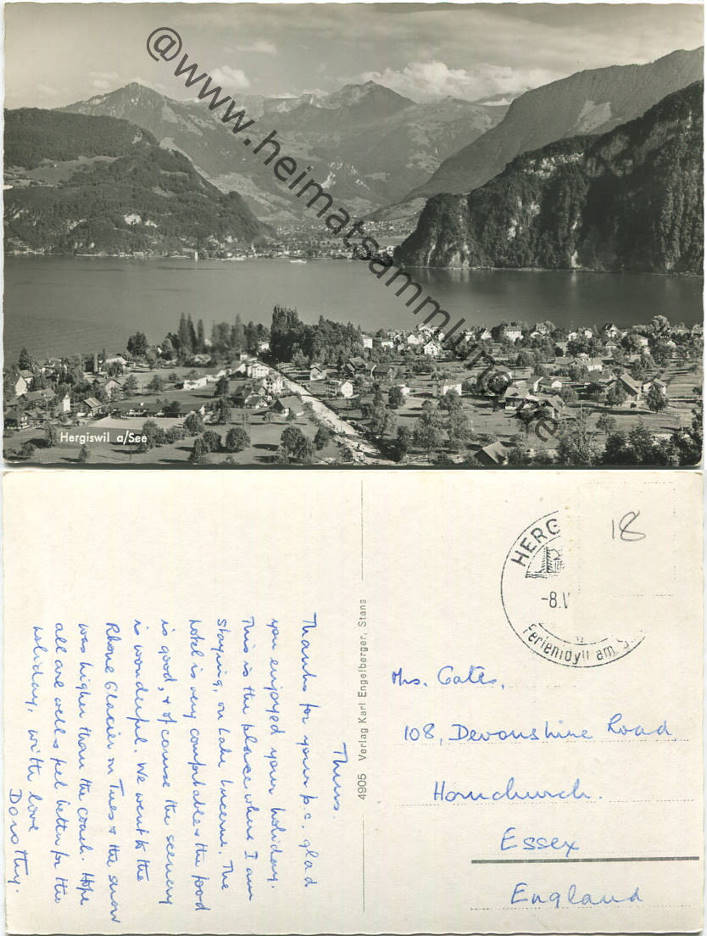 @www.heimatsammlung.de
Hergiswil a/See
18
HERG
-8.V
Ferienidyll am S
4905 Verlag Karl Engelberger, Stans
Thurs.
Thanks for your p.c. glad
you enjoyed your holiday.
This is the place where I am
staying, on Lake Lucerne. The
hotel is very comfortable & the food
is good, & of course the scenery
is wonderful. We went to the
Rhone Glacier on Tues & the snow
was higher than the coach. Hope
all are well & feel better for the
holiday, with love
Dorothy.
Mrs. Gates,
108, Devonshire Road
Hornchurch.
Essex
England